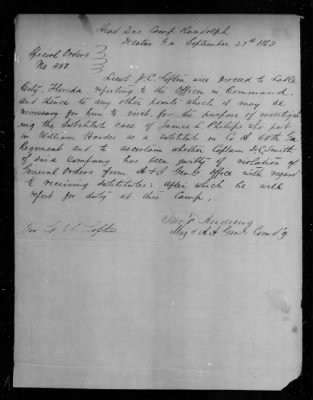 Head Qrs Camp Randolph
Decatur Ga September 27th 1863
Special Orders
No
Lieut J.C. Loftin will proceed to Lake
City, Florida, reporting to the Officer in Command,
and thence to any other points which it may be
necessary for him to visit, for the purpose of investigat
ing the Substitute case of James L Philips who put
in William Hardes as a substitute in Co A 64th Ga
Regiment and to ascertain whether Captain D.C. Smith
of said Company has been guilty of violation of
General Orders from A & I Genls office with regard
to receiving Substitutes; after which he will
report for duty at this Camp.
Andrews
Maj & A A Genl Comdg
Loftin